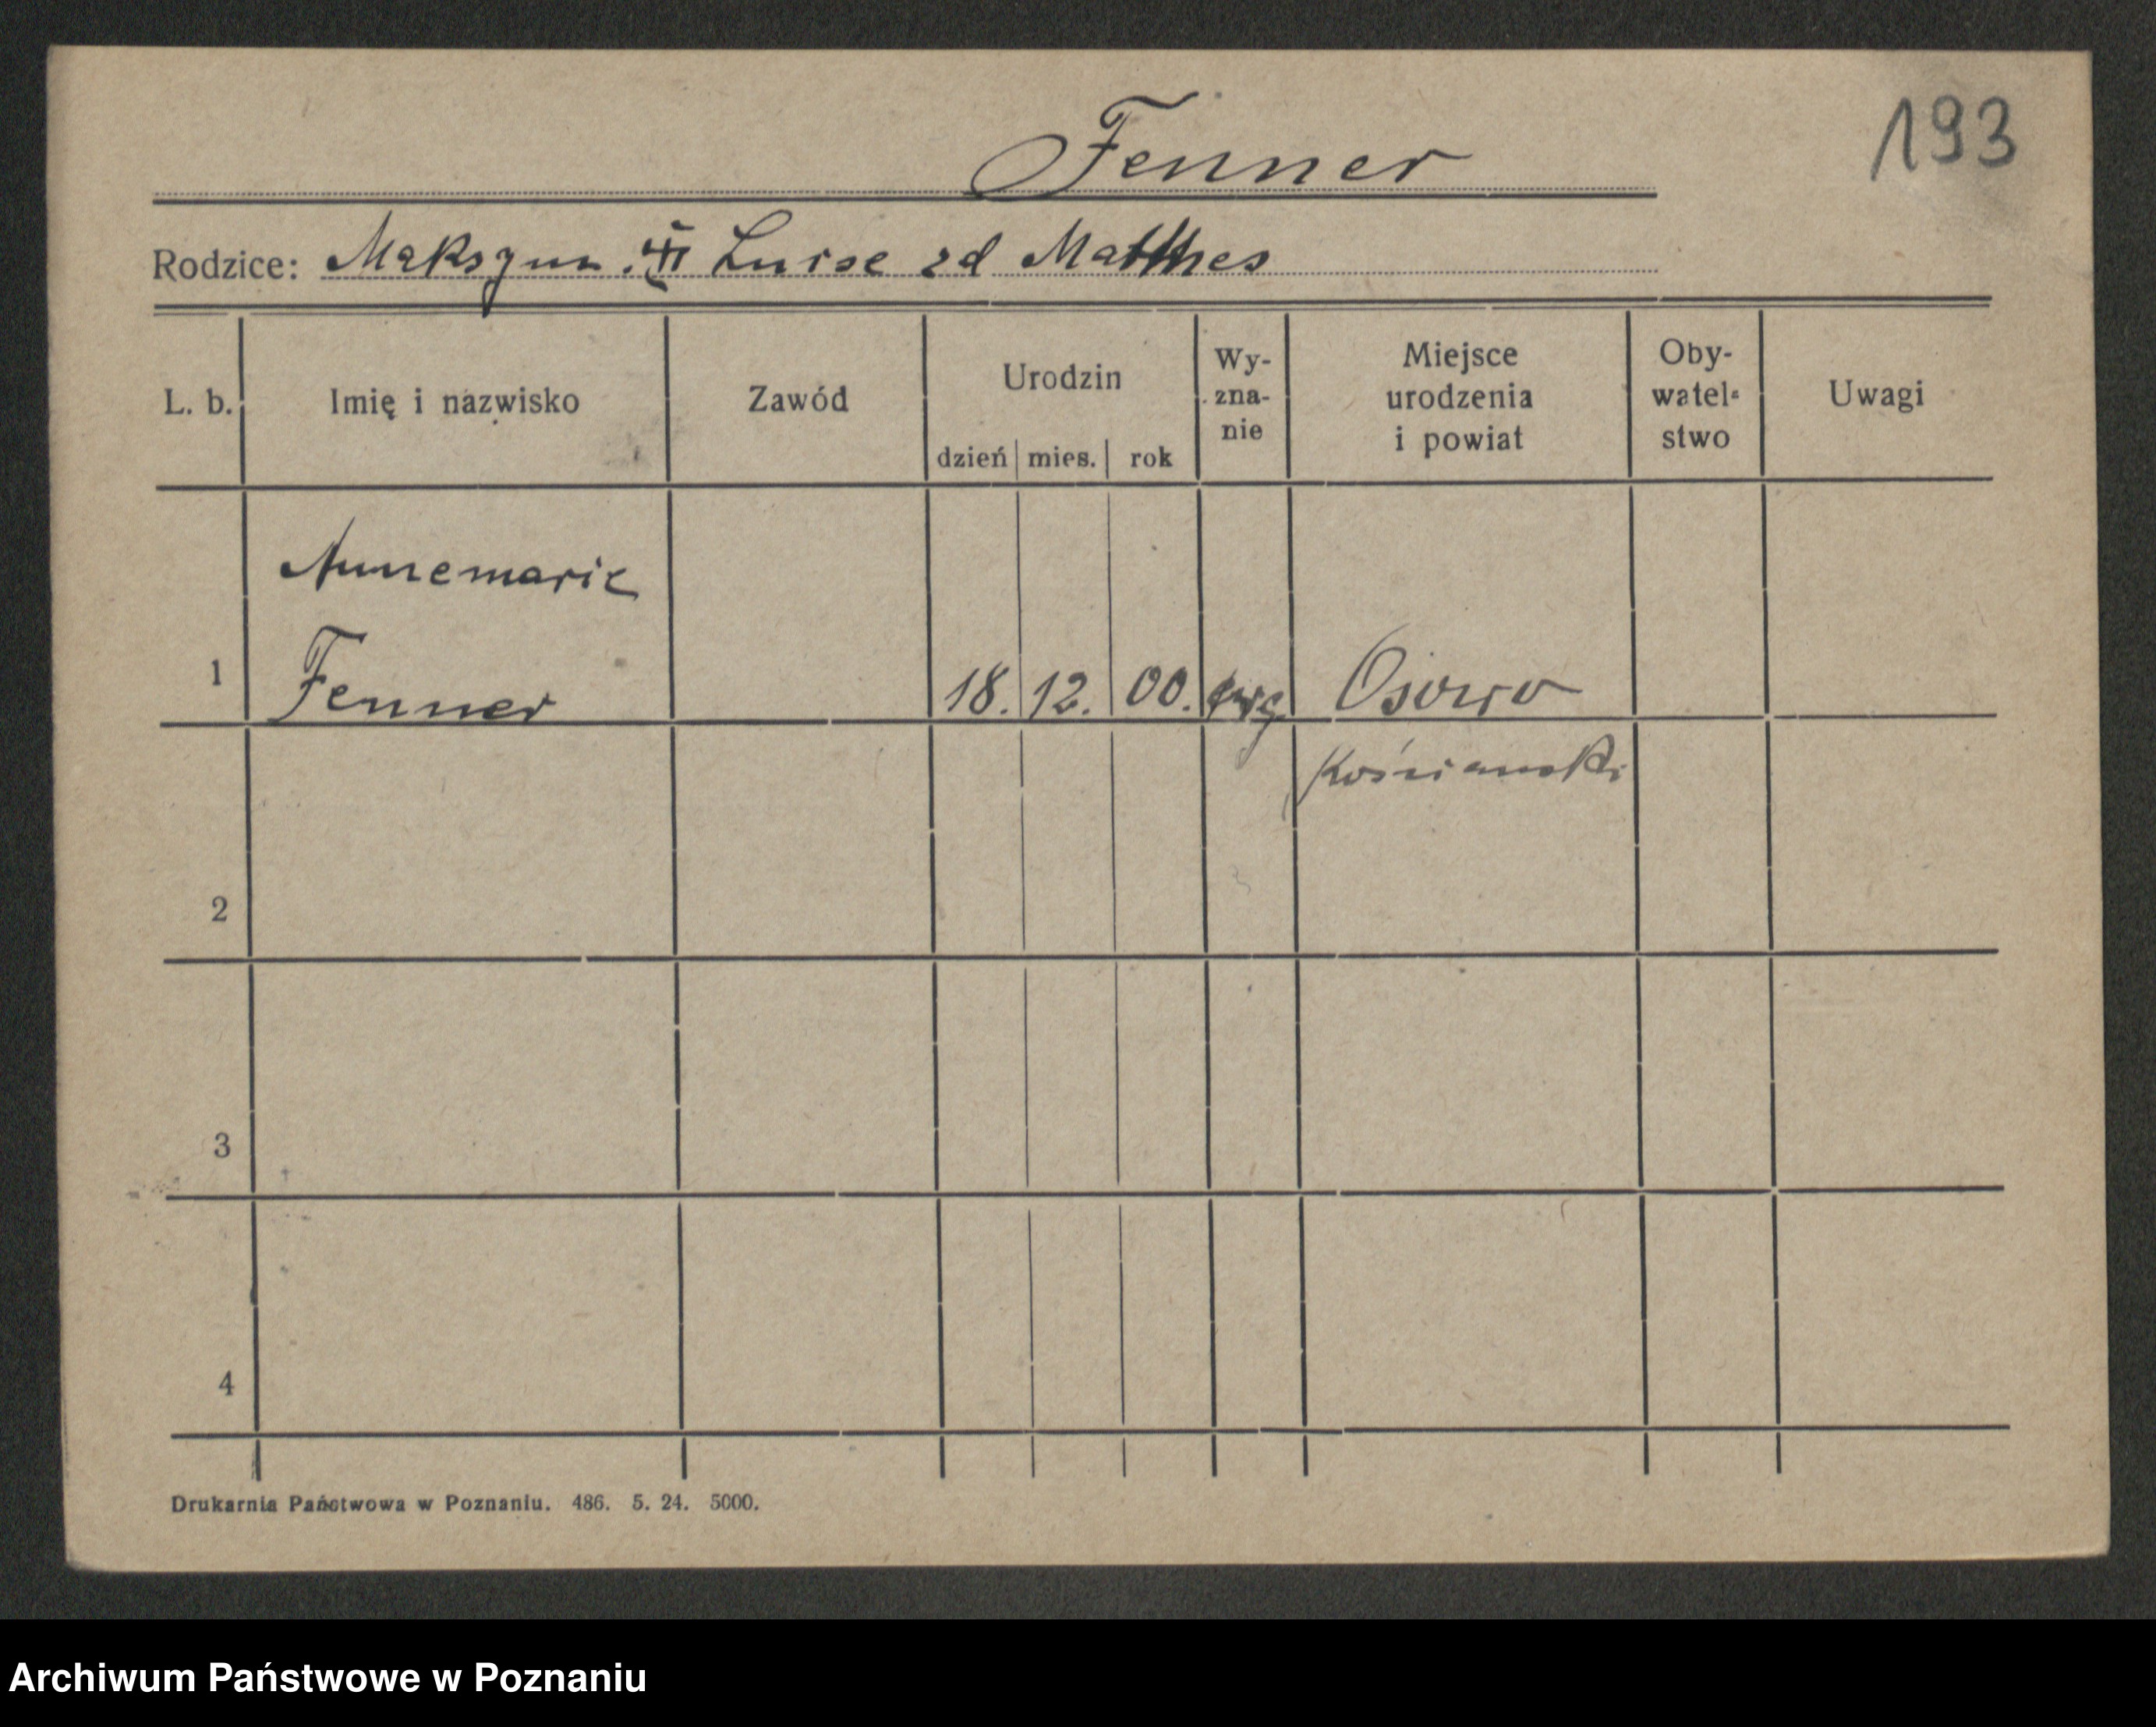 193
Fenner
Rodzice: Maksym. Luise zd Matthes
L. b. Imię i nazwisko Zawód Urodzin dzień mies. rok Wy-zna-nie Miejsce urodzenia i powiat Oby-watel-stwo Uwagi
Annemarie
1 Fenner 18. 12. 00. ewg Osowo
Kościański
2
3
4
Drukarnia Państwowa w Poznaniu. 486. 5. 24. 5000.
Archiwum Państwowe w Poznaniu